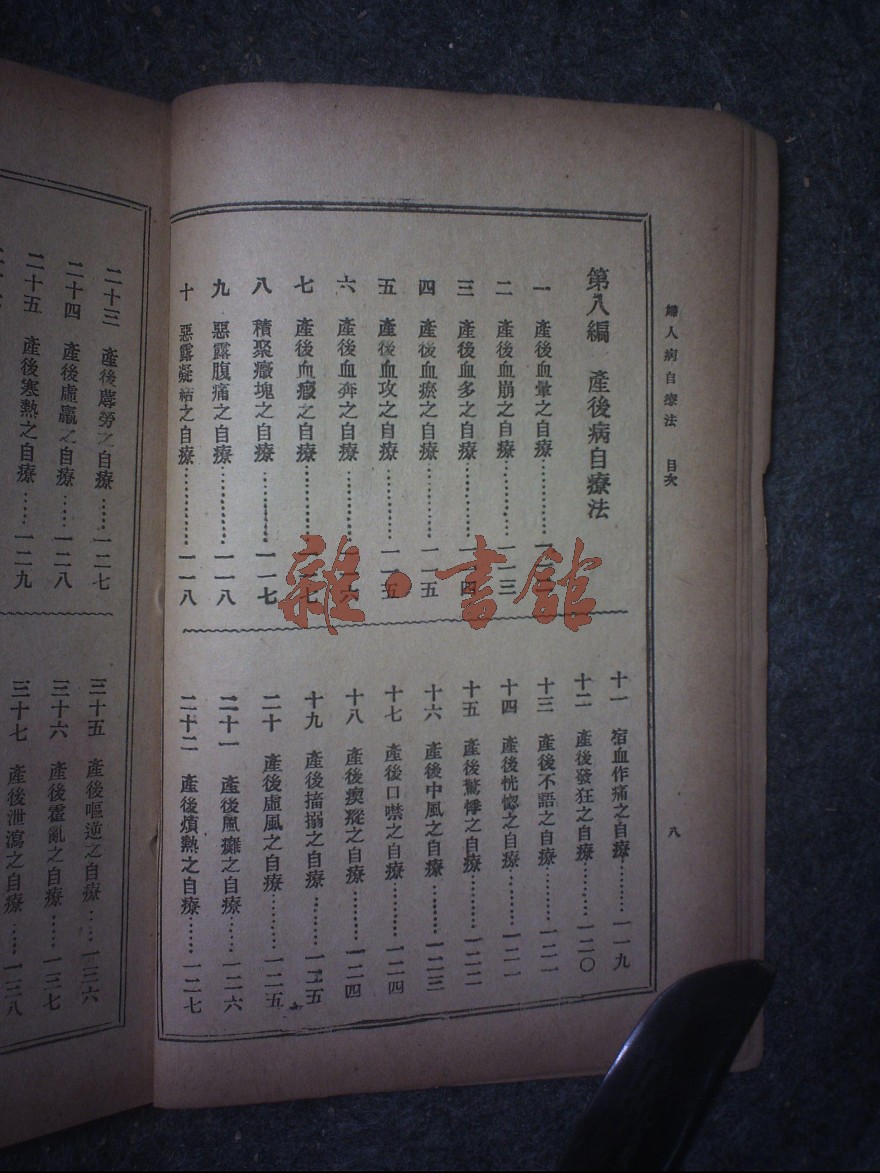 婦人病自療法　目次
八
第八編　產後病自療法
一　產後血暈之自療…………
二　產後血崩之自療…………一一三
三　產後血多之自療…………一一四
四　產後血瘀之自療…………一一五
五　產後血攻之自療…………一一五
六　產後血奔之自療…………一一六
七　產後血癥之自療…………一一七
八　積聚癥塊之自療…………一一七
九　惡露腹痛之自療…………一一八
十　惡露凝結之自療…………一一八
十一　宿血作痛之自療………一一九
十二　產後發狂之自療………一二〇
十三　產後不語之自療………一二一
十四　產後恍惚之自療………一二一
十五　產後驚悸之自療………一二二
十六　產後中風之自療………一二三
十七　產後口噤之自療………一二四
十八　產後瘈瘲之自療………一二四
十九　產後搐搦之自療………一二五
二十　產後虛風之自療………一二五
二十一　產後風癱之自療……一二六
二十二　產後煩熱之自療……一二七
二十三　產後蓐勞之自療……一二七
二十四　產後虛羸之自療……一二八
二十五　產後寒熱之自療……一二九
三十五　產後嘔逆之自療……一三六
三十六　產後霍亂之自療……一三七
三十七　產後泄瀉之自療……一三八
雜·書館